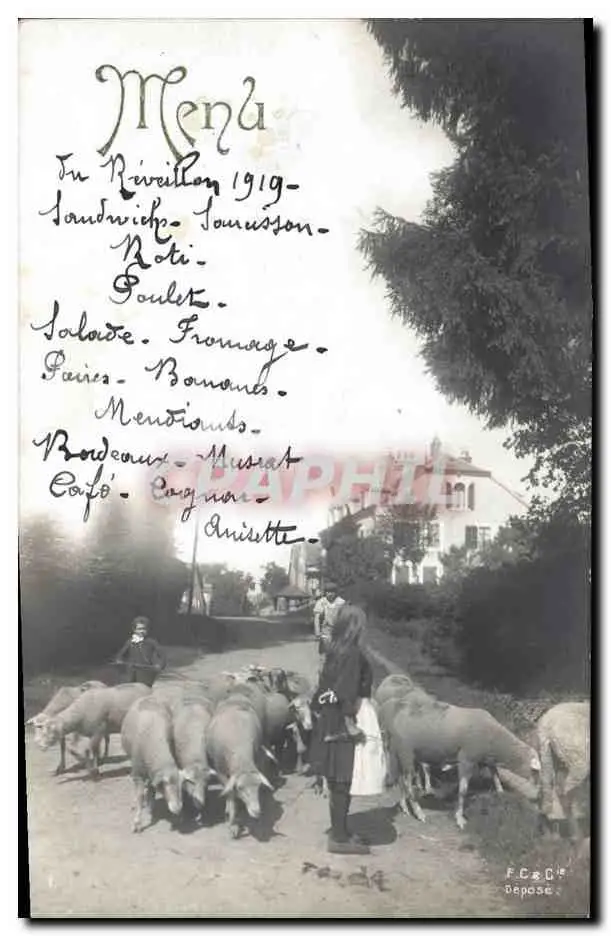 Menu
du Réveillon 1919-
Sandwichs- Saucisson-
Roti-
Poulet-
Salade- Fromage-
Poires- Bananes-
Mendiants-
Bordeaux- Muscat
Café- Cognac-
Anisette-
CPAPHIL
F.C & Cie
Déposé